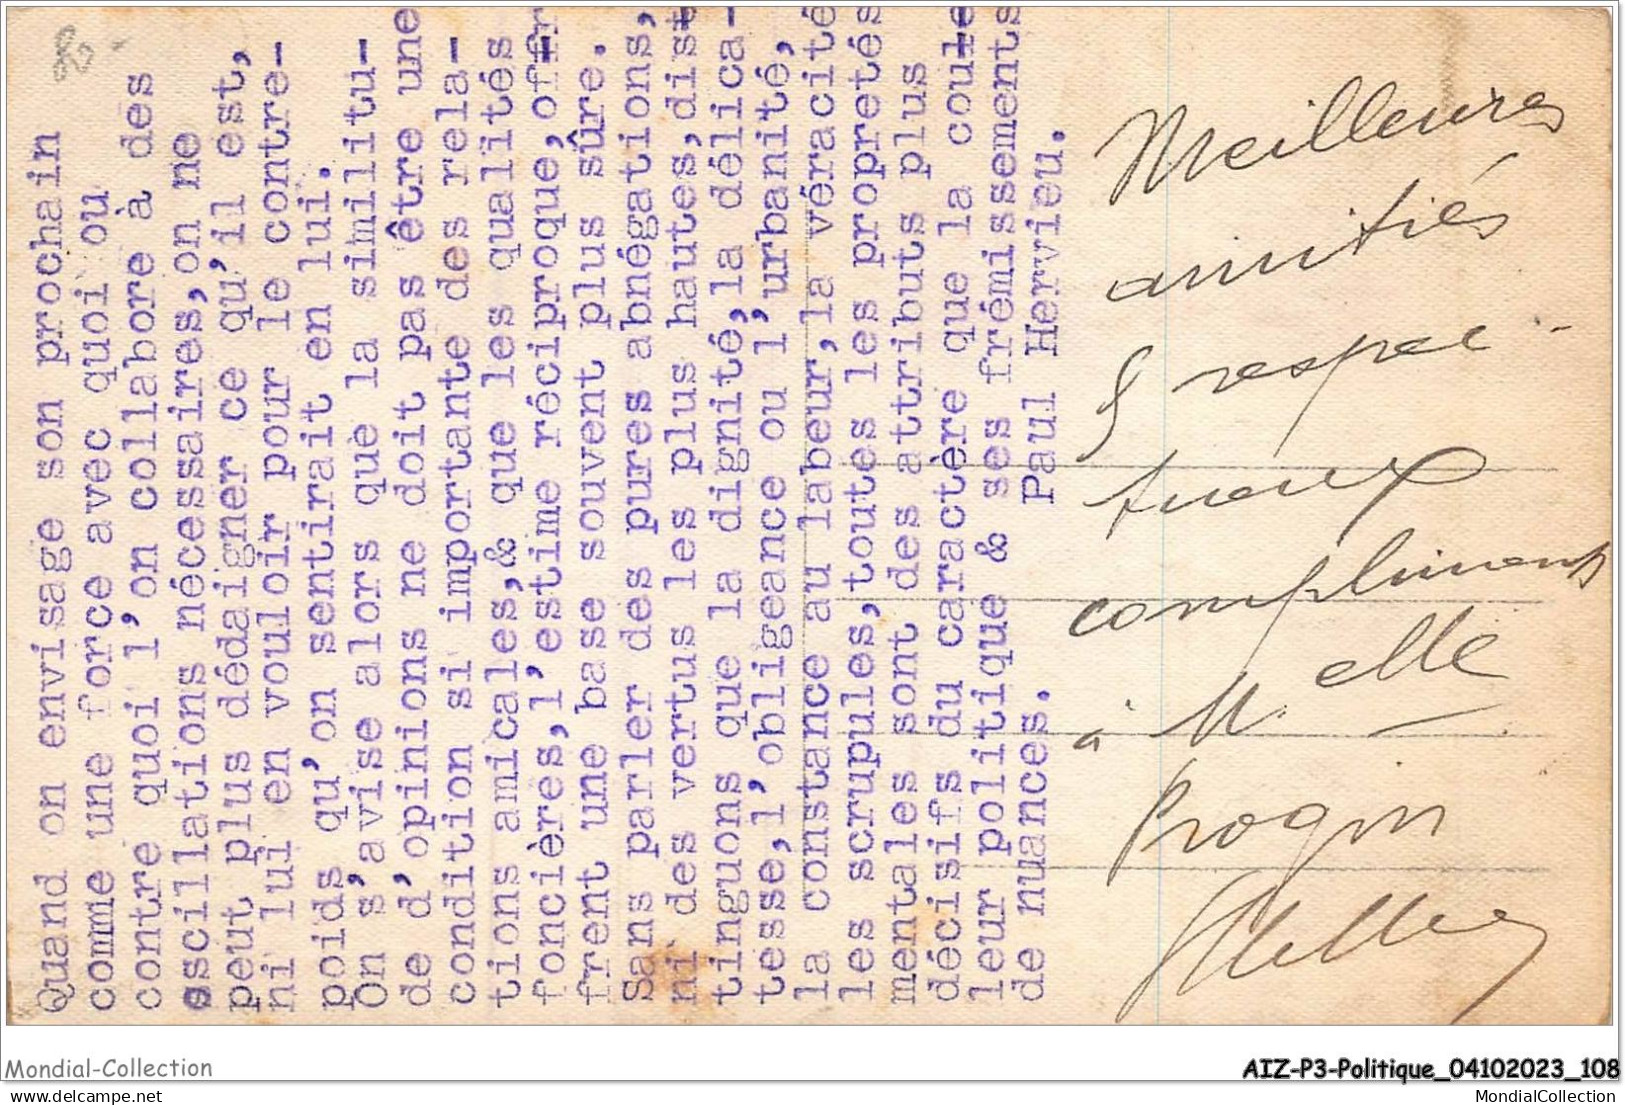 Quand on envisage son prochain
comme une force avec quoi ou
contre quoi l'on collabore à des
oscillations nécessaires,on ne
peut plus dédaigner ce qu'il est,
ni lui en vouloir pour le contre-
poids qu'on sentirait en lui.
On s'avise alors que la similitu-
de d'opinions ne doit pas être une
condition si importante des rela-
tions amicales,& que les qualités
foncières,l'estime réciproque,offr
frent une base souvent plus sûre.
Sans parler des pures abnégations,
ni des vertus les plus hautes,dist
tinguons que la dignité,la délica-
tesse,l'obligeance ou l'urbanité,
la constance au labeur,la véracité
les scrupules,toutes les propretés
mentales sont des attributs plus
décisifs du caractère que la coule
leur politique & ses frémissements
de nuances.
Paul Hervieu.
Meilleures
amitiés
& respec-
tueux
compliments
à Melle
Progin
80
Mondial-Collection
AIZ-P3-Politique_04102023_108
MondialCollection